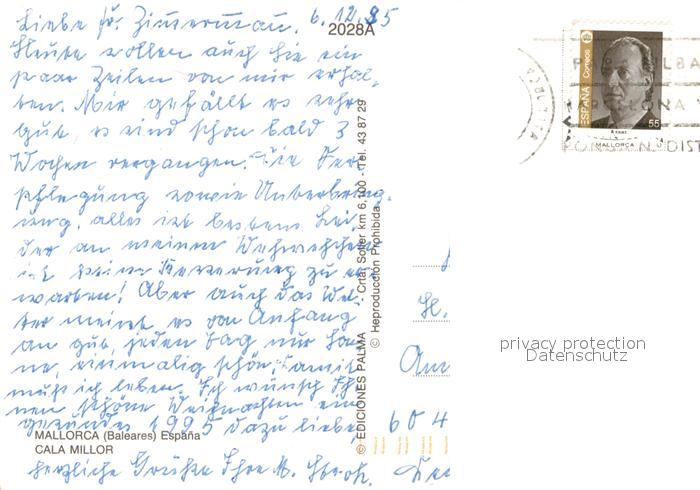 Liebe Fr. Zimmermann. 6.12.95
2028A
Heute sollen auch Sie ein
paar Zeilen von mir erhal-
ten. Mir gefällt es sehr
gut, es sind schon bald 3
Wochen vergangen. Die Ver-
pflegung sowie Unterbring-
ung, alles ist bestens. Lei-
der an meinem Wehwehchen
ist keine Besserung zu er-
warten! Aber auch das Wet-
ter meint es von Anfang
an gut, jeden Tag nur Son-
ne, einmalig schön, damit
muß ich leben. Ich wünsch Ih-
nen schöne Weihnachten ein
gesundes 1995 dazu liebe,
herzliche Grüße Ihre M.
MALLORCA (Baleares) España
CALA MILLOR
© EDICIONES PALMA - Crta. Soller km 6,100 - Tel. 43 87 29
© Reproducción Prohibida
ESPAÑA Correos
55
MALLORCA
privacy protection
Datenschutz
604